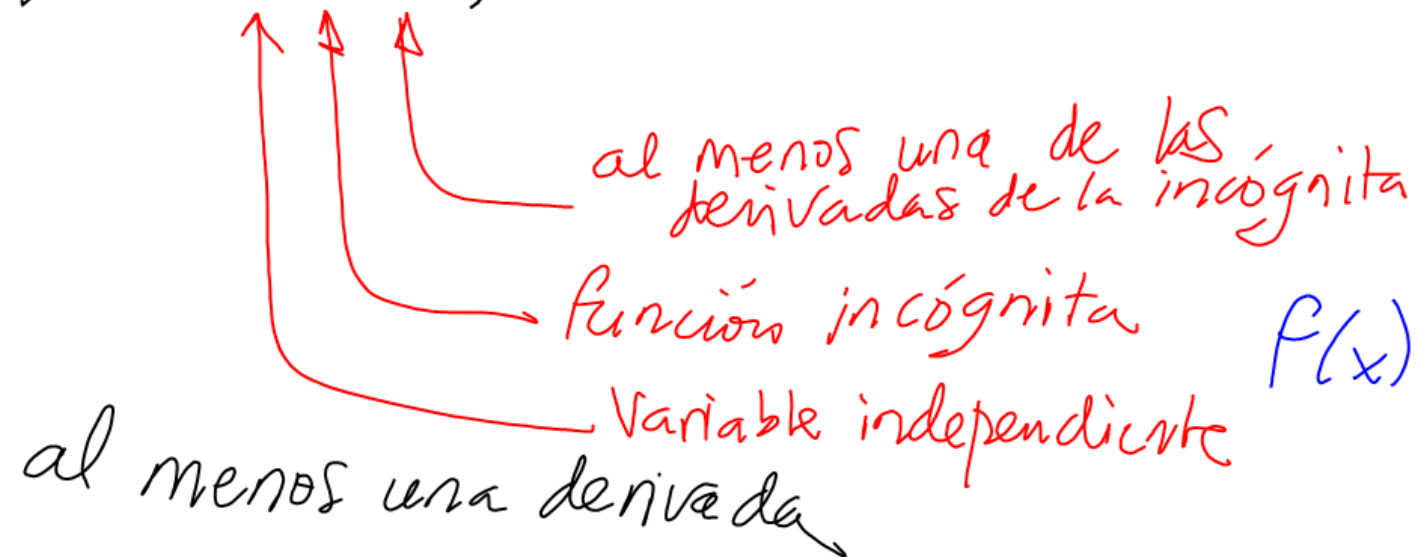 al menos una de las
derivadas de la incógnita
función incógnita
f(x)
Variable independiente
al menos una derivada